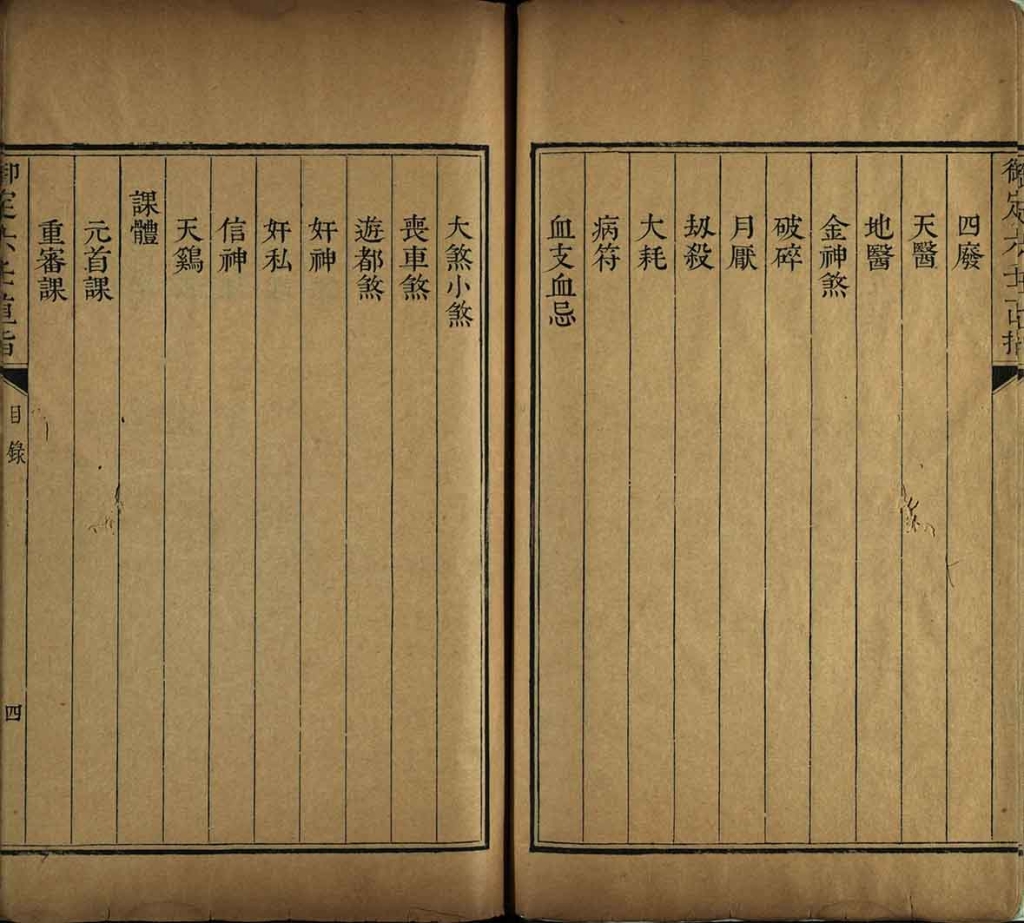 御定六壬直指
四廢
天醫
地醫
金神煞
破碎
月厭
刼殺
大耗
病符
血支血忌
大煞小煞
喪車煞
遊都煞
奸神
奸私
信神
天鷄
課體
元首課
重審課
御定六壬直指
目錄
四